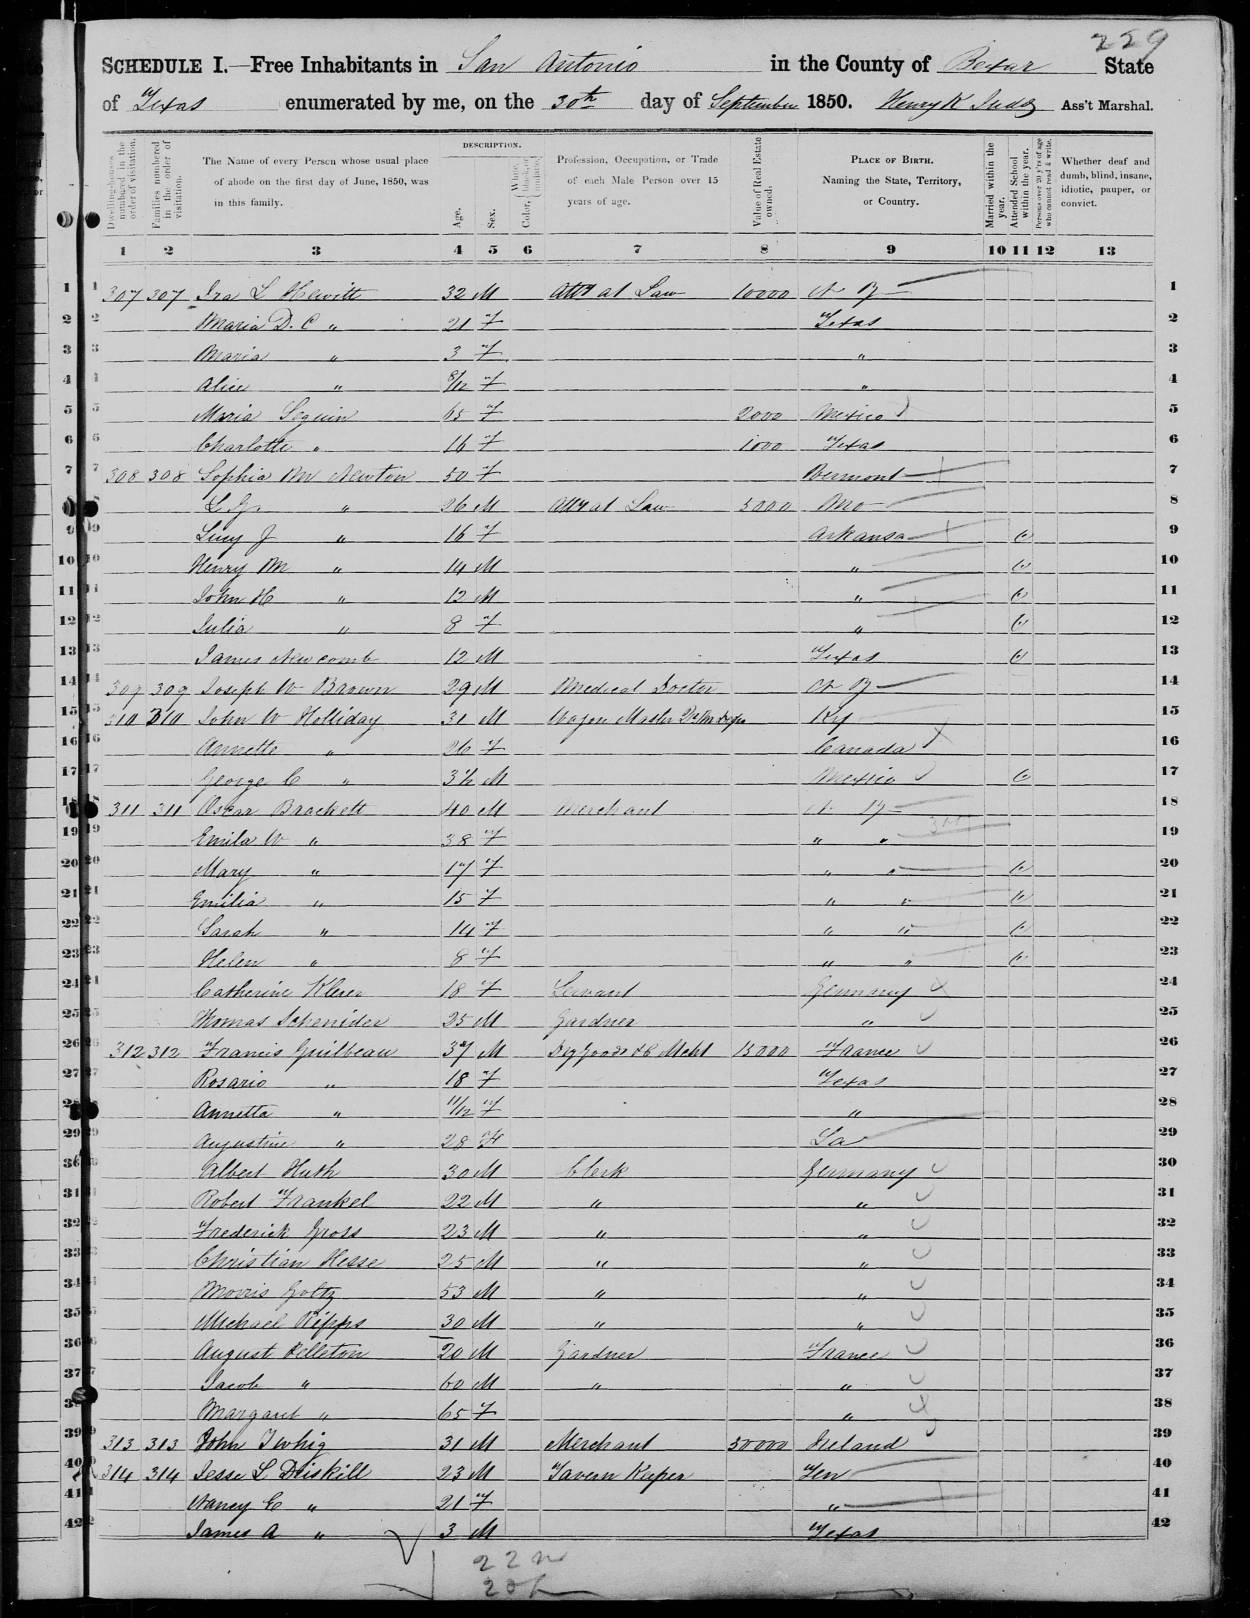 229
SCHEDULE I.—Free Inhabitants in San Antonio in the County of Bexar State
of Texas enumerated by me, on the 30th day of September 1850. Henry K Judd Ass't Marshal.
Dwelling-houses numbered in the order of visitation.
Families numbered in the order of visitation.
The Name of every Person whose usual place of abode on the first day of June, 1850, was in this family.
DESCRIPTION.
Age.
Sex.
Color, White, black, or mulatto.
Profession, Occupation, or Trade of each Male Person over 15 years of age.
Value of Real Estate owned.
PLACE OF BIRTH. Naming the State, Territory, or Country.
Married within the year.
Attended School within the year.
Persons over 20 y'rs of age who cannot read & write.
Whether deaf and dumb, blind, insane, idiotic, pauper, or convict.
1 2 3 4 5 6 7 8 9 10 11 12 13
1 307 307 Ira L Hewitt 32 M Atty at Law 10000 N Y 1
2 Maria D. C " 21 F Texas 2
3 Maria " 3 F " 3
4 Alice " 8/12 F " 4
5 Maria Seguin 65 F 2000 Mexico 5
6 Charlotte " 16 F 1000 Texas 6
7 308 308 Sophia M Newton 50 F Vermont 7
8 L G " 26 M Atty at Law 5000 Mo 8
9 Lucy J " 16 F Arkansa 9
10 Henry M " 14 M " 10
11 John H " 12 M " 11
12 Julia " 8 F " 12
13 James Newcomb 12 M Texas 13
14 309 309 Joseph W Brown 29 M Medical Doctor N Y 14
15 310 310 John W Holliday 31 M Wagon Master Ky 15
16 Annette " 26 F Canada 16
17 George C " 3½ M Mexico 17
18 311 311 Oscar Brackett 40 M Merchant N Y 18
19 Emila W " 38 F " " 19
20 Mary " 17 F " " 20
21 Emilia " 15 F " " 21
22 Sarah " 14 F " " 22
23 Helen " 8 F " " 23
24 Catherine 18 F Servant Germany 24
25 Thomas Schenider 25 M Gardner " 25
26 312 312 Francis Guilbeau 37 M Dry Goods &c Mcht 15000 France 26
27 Rosario " 18 F Texas 27
28 Annetta " 11/12 F " 28
29 Augustine " 28 La 29
30 Albert Huth 30 M Clerk Germany 30
31 Robert Frankel 22 M " " 31
32 Frederick Gross 23 M " " 32
33 Christian Hesse 25 M " " 33
34 Morris Goltz 53 M " " 34
35 Michael Ripps 30 M " " 35
36 August Pelleton 20 M Gardner France 36
37 Jacob " 60 M " " 37
38 Margaret " 65 F " 38
39 313 313 John Twhig 31 M Merchant 50000 Ireland 39
40 314 314 Jesse L Driskill 23 M Tavern Keeper Ten 40
41 Nancy E " 21 F " 41
42 James A " 3 M Texas 42